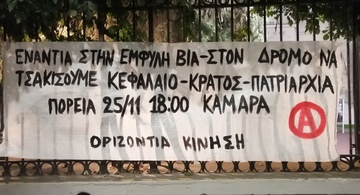 ΕΝΑΝΤΙΑ ΣΤΗΝ ΕΜΦΥΛΗ ΒΙΑ-ΣΤΟΝ ΔΡΟΜΟ ΝΑ
ΤΣΑΚΙΣΟΥΜΕ ΚΕΦΑΛΑΙΟ-ΚΡΑΤΟΣ-ΠΑΤΡΙΑΡΧΙΑ
ΠΟΡΕΙΑ 25/11 18:00 ΚΑΜΑΡΑ
Α
ΟΡΙΖΟΝΤΙΑ ΚΙΝΗΣΗ